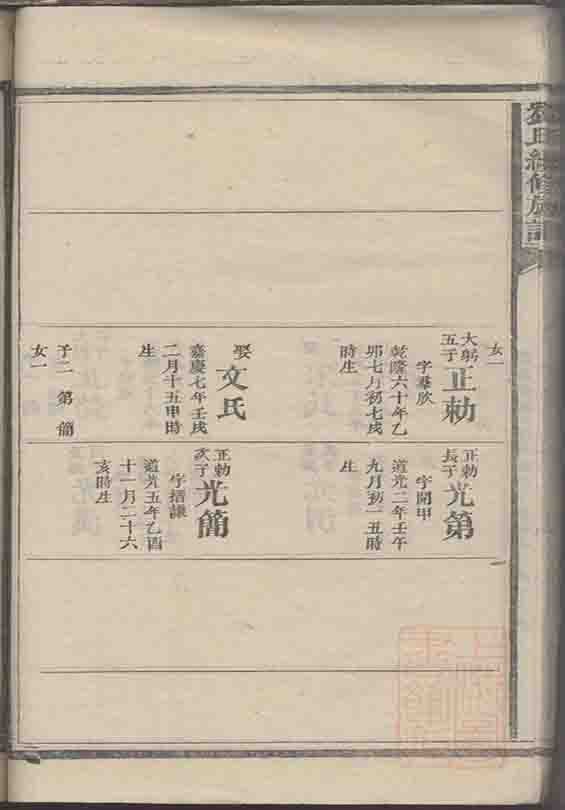 劉氏續修族譜
女一
大躬五子 正勅
字羣欣
乾隆六十年乙
卯七月初七戌
時生
娶 文氏
嘉慶七年壬戌
二月十五甲時
生
子二 第 簡
女一
正勅長子 光第
字開甲
道光二年壬午
九月初一丑時
生
正勅次子 光簡
字搢謙
道光五年乙酉
十一月二十六
亥時生